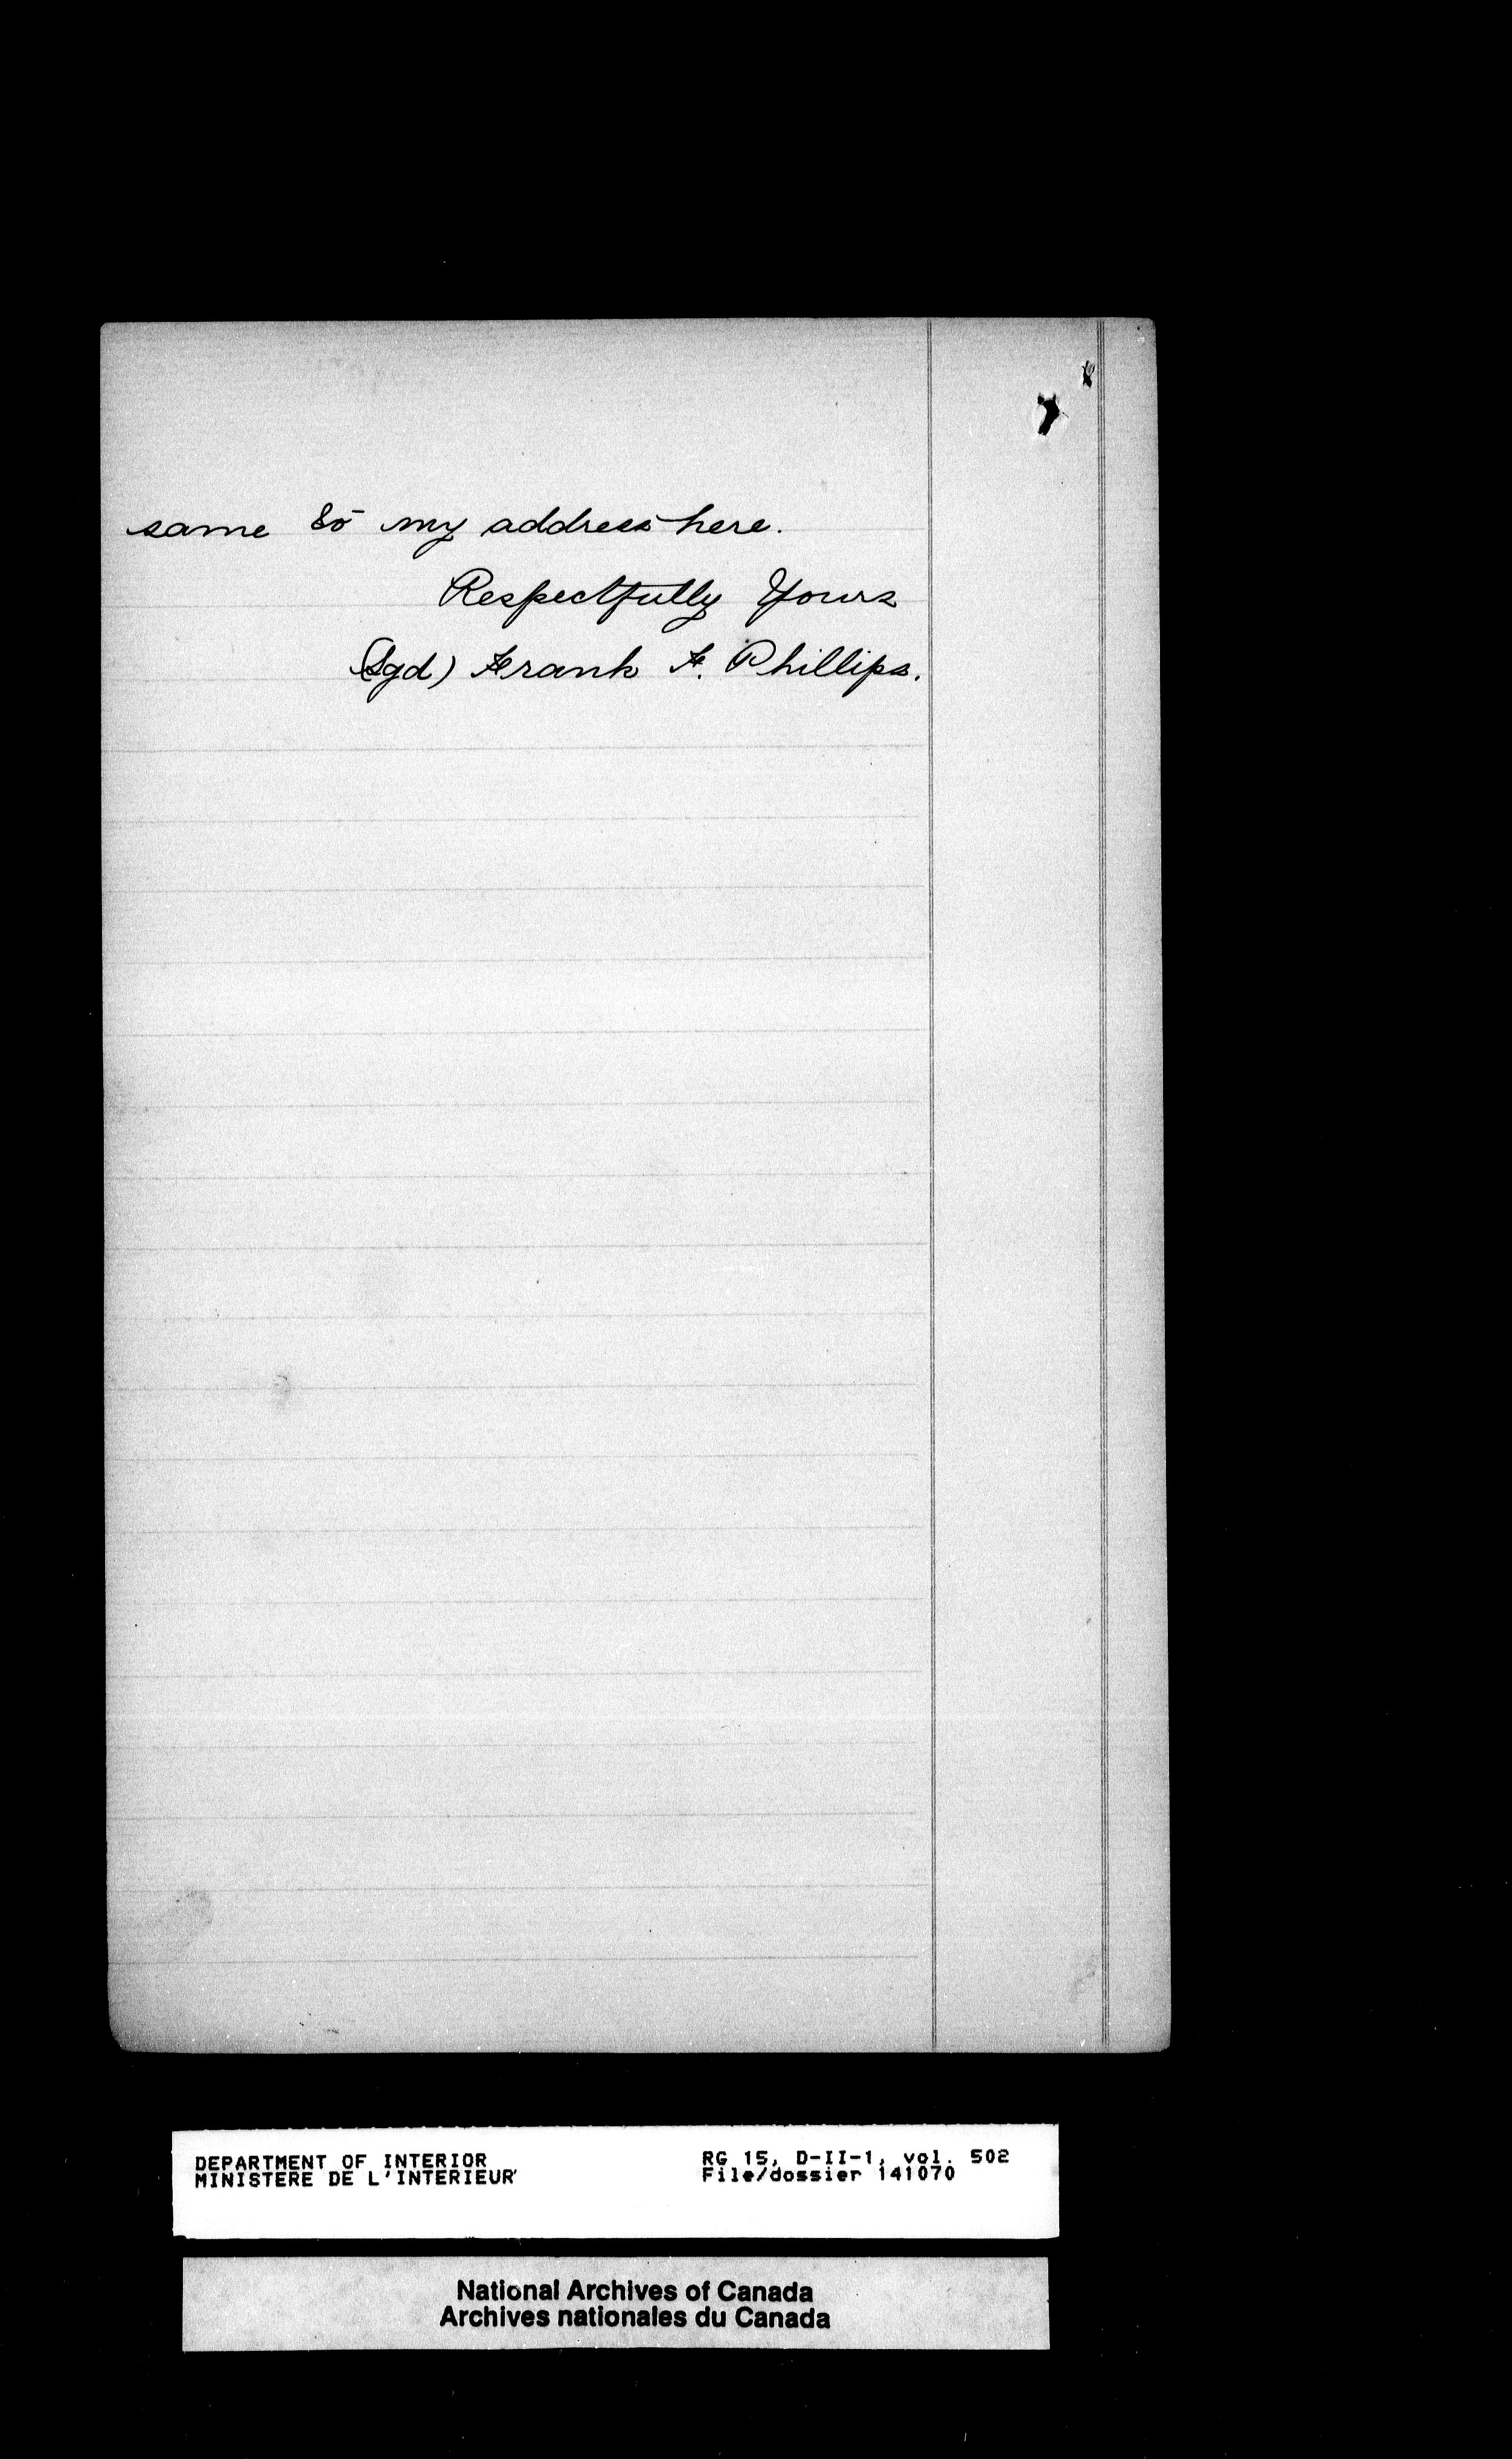 same to my address here.
Respectfully Yours
(Sgd) Frank F. Phillips.
DEPARTMENT OF INTERIOR
MINISTERE DE L'INTERIEUR
RG 15, D-II-1, vol. 502
File/dossier 141070
National Archives of Canada
Archives nationales du Canada